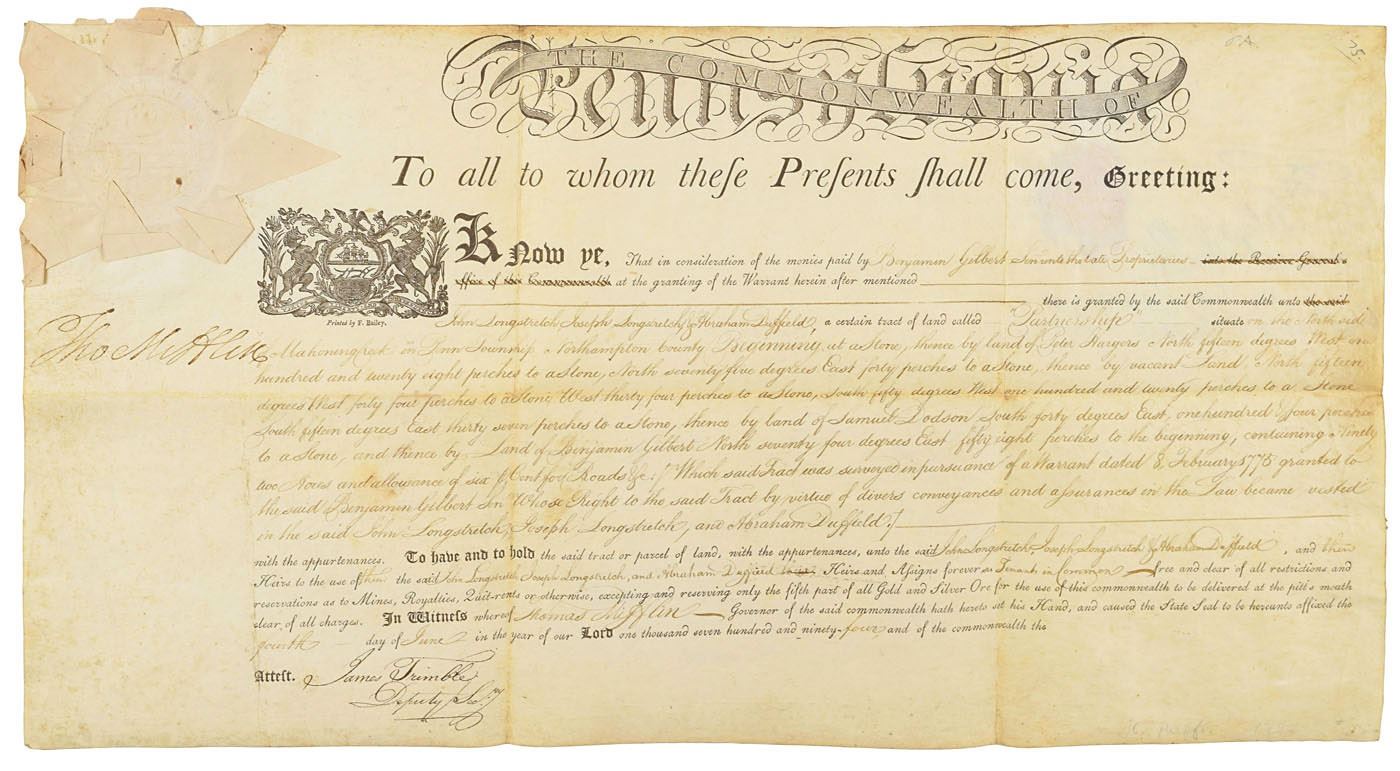 THE COMMONWEALTH OF
Pennsylvania
To all to whom theſe Preſents ſhall come, Greeting:
Know ye, That in consideration of the monies paid by Benjamin Gilbert Sen unto the late Proprietaries into the Receiver General's
office of this Commonwealth at the granting of the Warrant herein after mentioned
there is granted by the said Commonwealth unto the said
Printed by F. Bailey.
John Longstretch Joseph Longstretch & Abraham Duffield, a certain tract of land called Partnership situate on the North side
Tho Mifflin
Mahoning in Penn Township Northampton County Beginning at a Stone, thence by land of Peter Hargers North fifteen degrees West one
hundred and twenty eight perches to a Stone, North seventy five degrees East forty perches to a Stone, thence by vacant Land, North fifteen
degrees West forty four perches to a Stone, West thirty four perches to a Stone, South fifty degrees West one hundred and twenty perches to a Stone
South fifteen degrees East thirty seven perches to a Stone, thence by land of Samuel Dodson South forty degrees East, one hundred & four perches
to a Stone, and thence by Land of Benjamin Gilbert North seventy four degrees East fifty eight perches to the beginning, containing Ninety
two Acres and allowance of six ⅌ Cent for Roads &c. Which said Tract was surveyed in pursuance of a Warrant dated 8 February 1775 granted to
the said Benjamin Gilbert Sen Whose Right to the said Tract by virtue of divers conveyances and assurances in the Law became vested
in the said John Longstretch, Joseph Longstretch, and Abraham Duffield
with the appurtenances. To have and to hold the said tract or parcel of land, with the appurtenances, unto the said John Longstretch, Joseph Longstretch & Abraham Duffield, and their
Heirs to the use of them the said John Longstretch Joseph Longstretch, and Abraham Duffield Heirs and Assigns forever as Tenants in Common free and clear of all restrictions and
reservations as to Mines, Royalties, Quit-rents or otherwise, excepting and reserving only the fifth part of all Gold and Silver Ore for the use of this commonwealth to be delivered at the pit's mouth
clear of all charges. In Witness whereof Thomas Mifflin Governor of the said commonwealth hath hereto set his Hand, and caused the State Seal to be hereunto affixed the
fourth day of June in the year of our Lord one thousand seven hundred and ninety-four, and of the commonwealth the
Attest. James Trimble
Deputy Secy